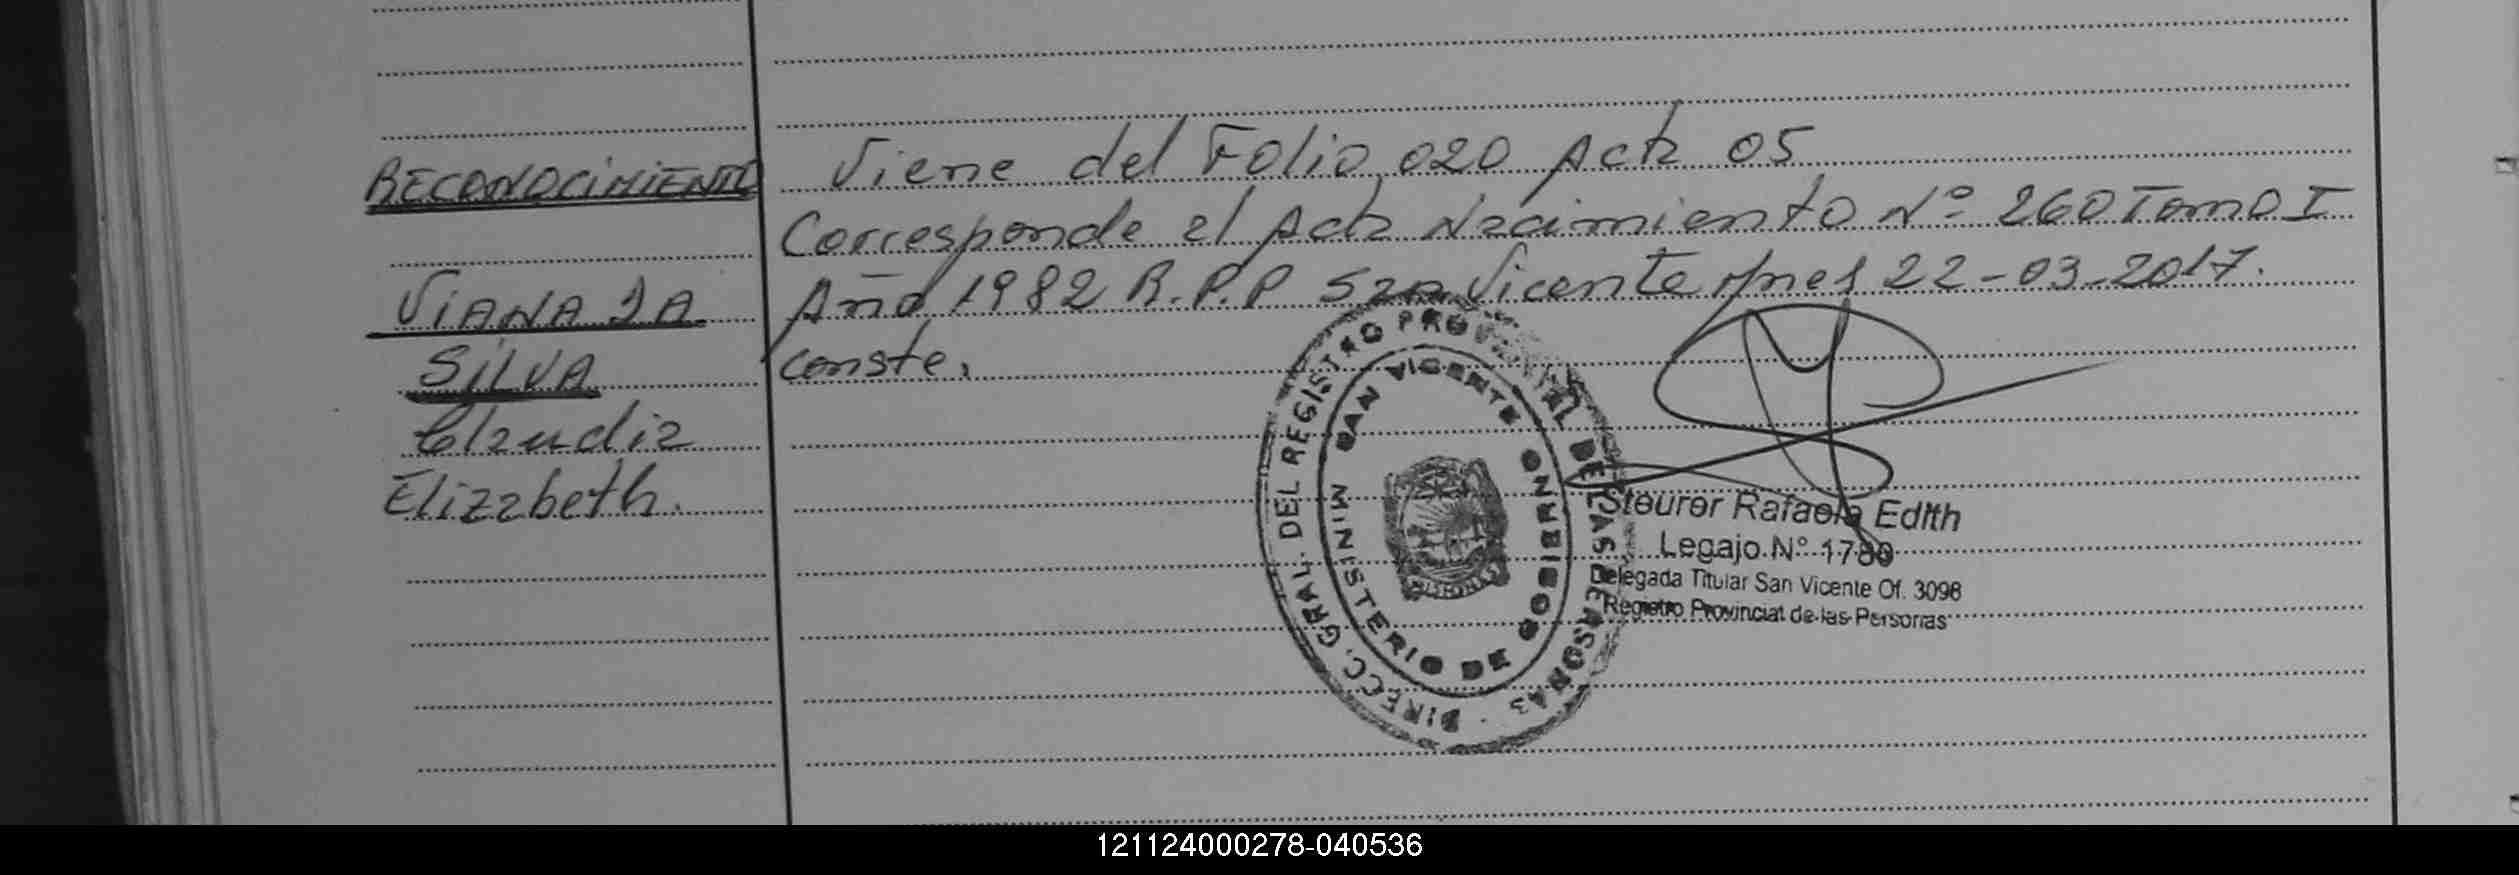 RECONOCIMIENTO
VIANA DA
SILVA
Claudia
Elizabeth.
Viene del Folio 020 Acta 05
Corresponde al Acta Nacimiento Nº 260 Tomo I
Año 1982 R.P.P San Vicente Mnes 22-03-2017.
Conste.
DIRECC. GRAL. DEL REGISTRO PROVINCIAL DE LAS PERSONAS
MINISTERIO DE GOBIERNO SAN VICENTE
MISIONES
Steurer Rafaela Edith
Legajo Nº 1780
Delegada Titular San Vicente Of. 3098
Registro Provincial de las Personas
121124000278-040536